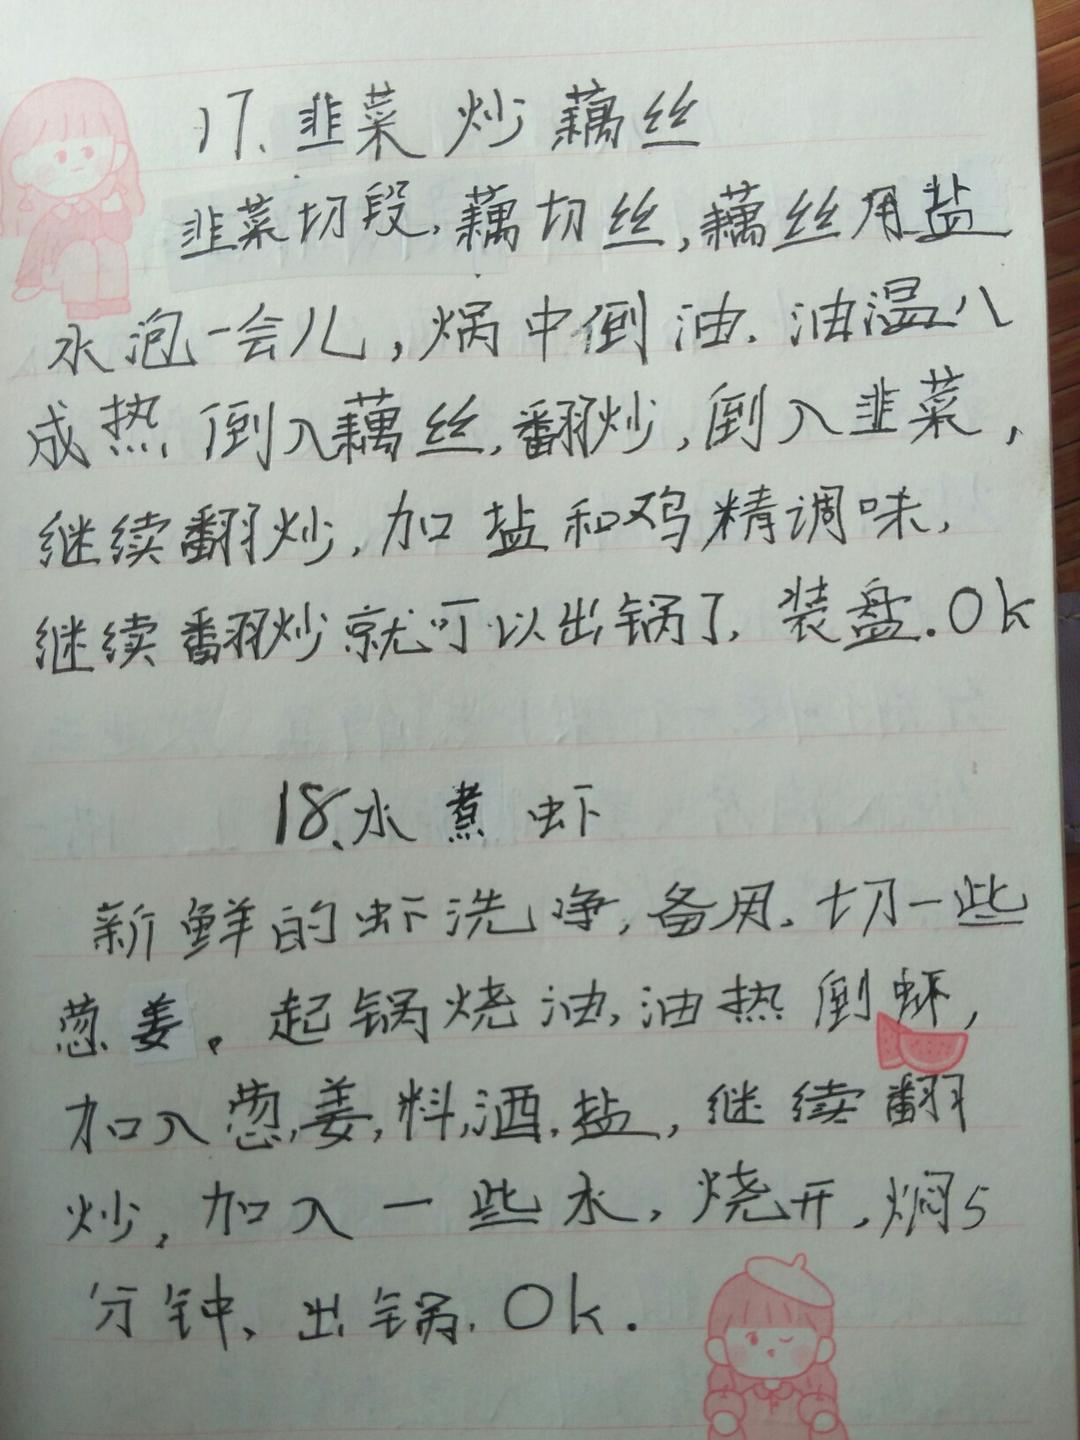 17.韭菜炒藕丝
韭菜切段,藕切丝,藕丝用盐
水泡一会儿,焗中倒油.油温八
成热倒入藕丝,翻炒,倒入韭菜,
继续翻炒,加盐和鸡精调味,
继续翻炒就可以出锅了,装盘.Ok
18.水煮虾
新鲜的虾洗净,备用.切一些
葱姜。起锅烧油,油热倒虾,
加入葱,姜,料,酒,盐,继续翻
炒,加入一些水,烧开,焖5
分钟、出锅.Ok.